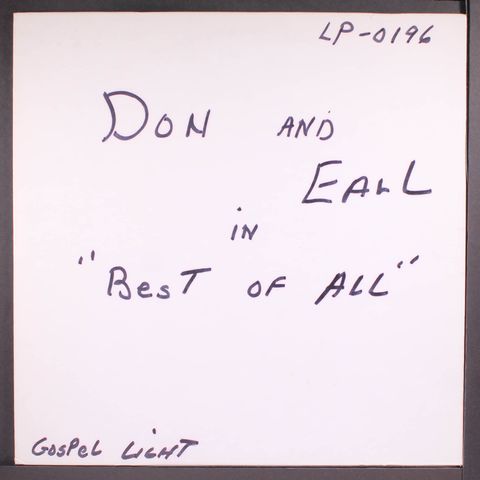 LP-0196
DON AND
EALL
in
"BesT OF ALL"
GOSPeL LIGHT